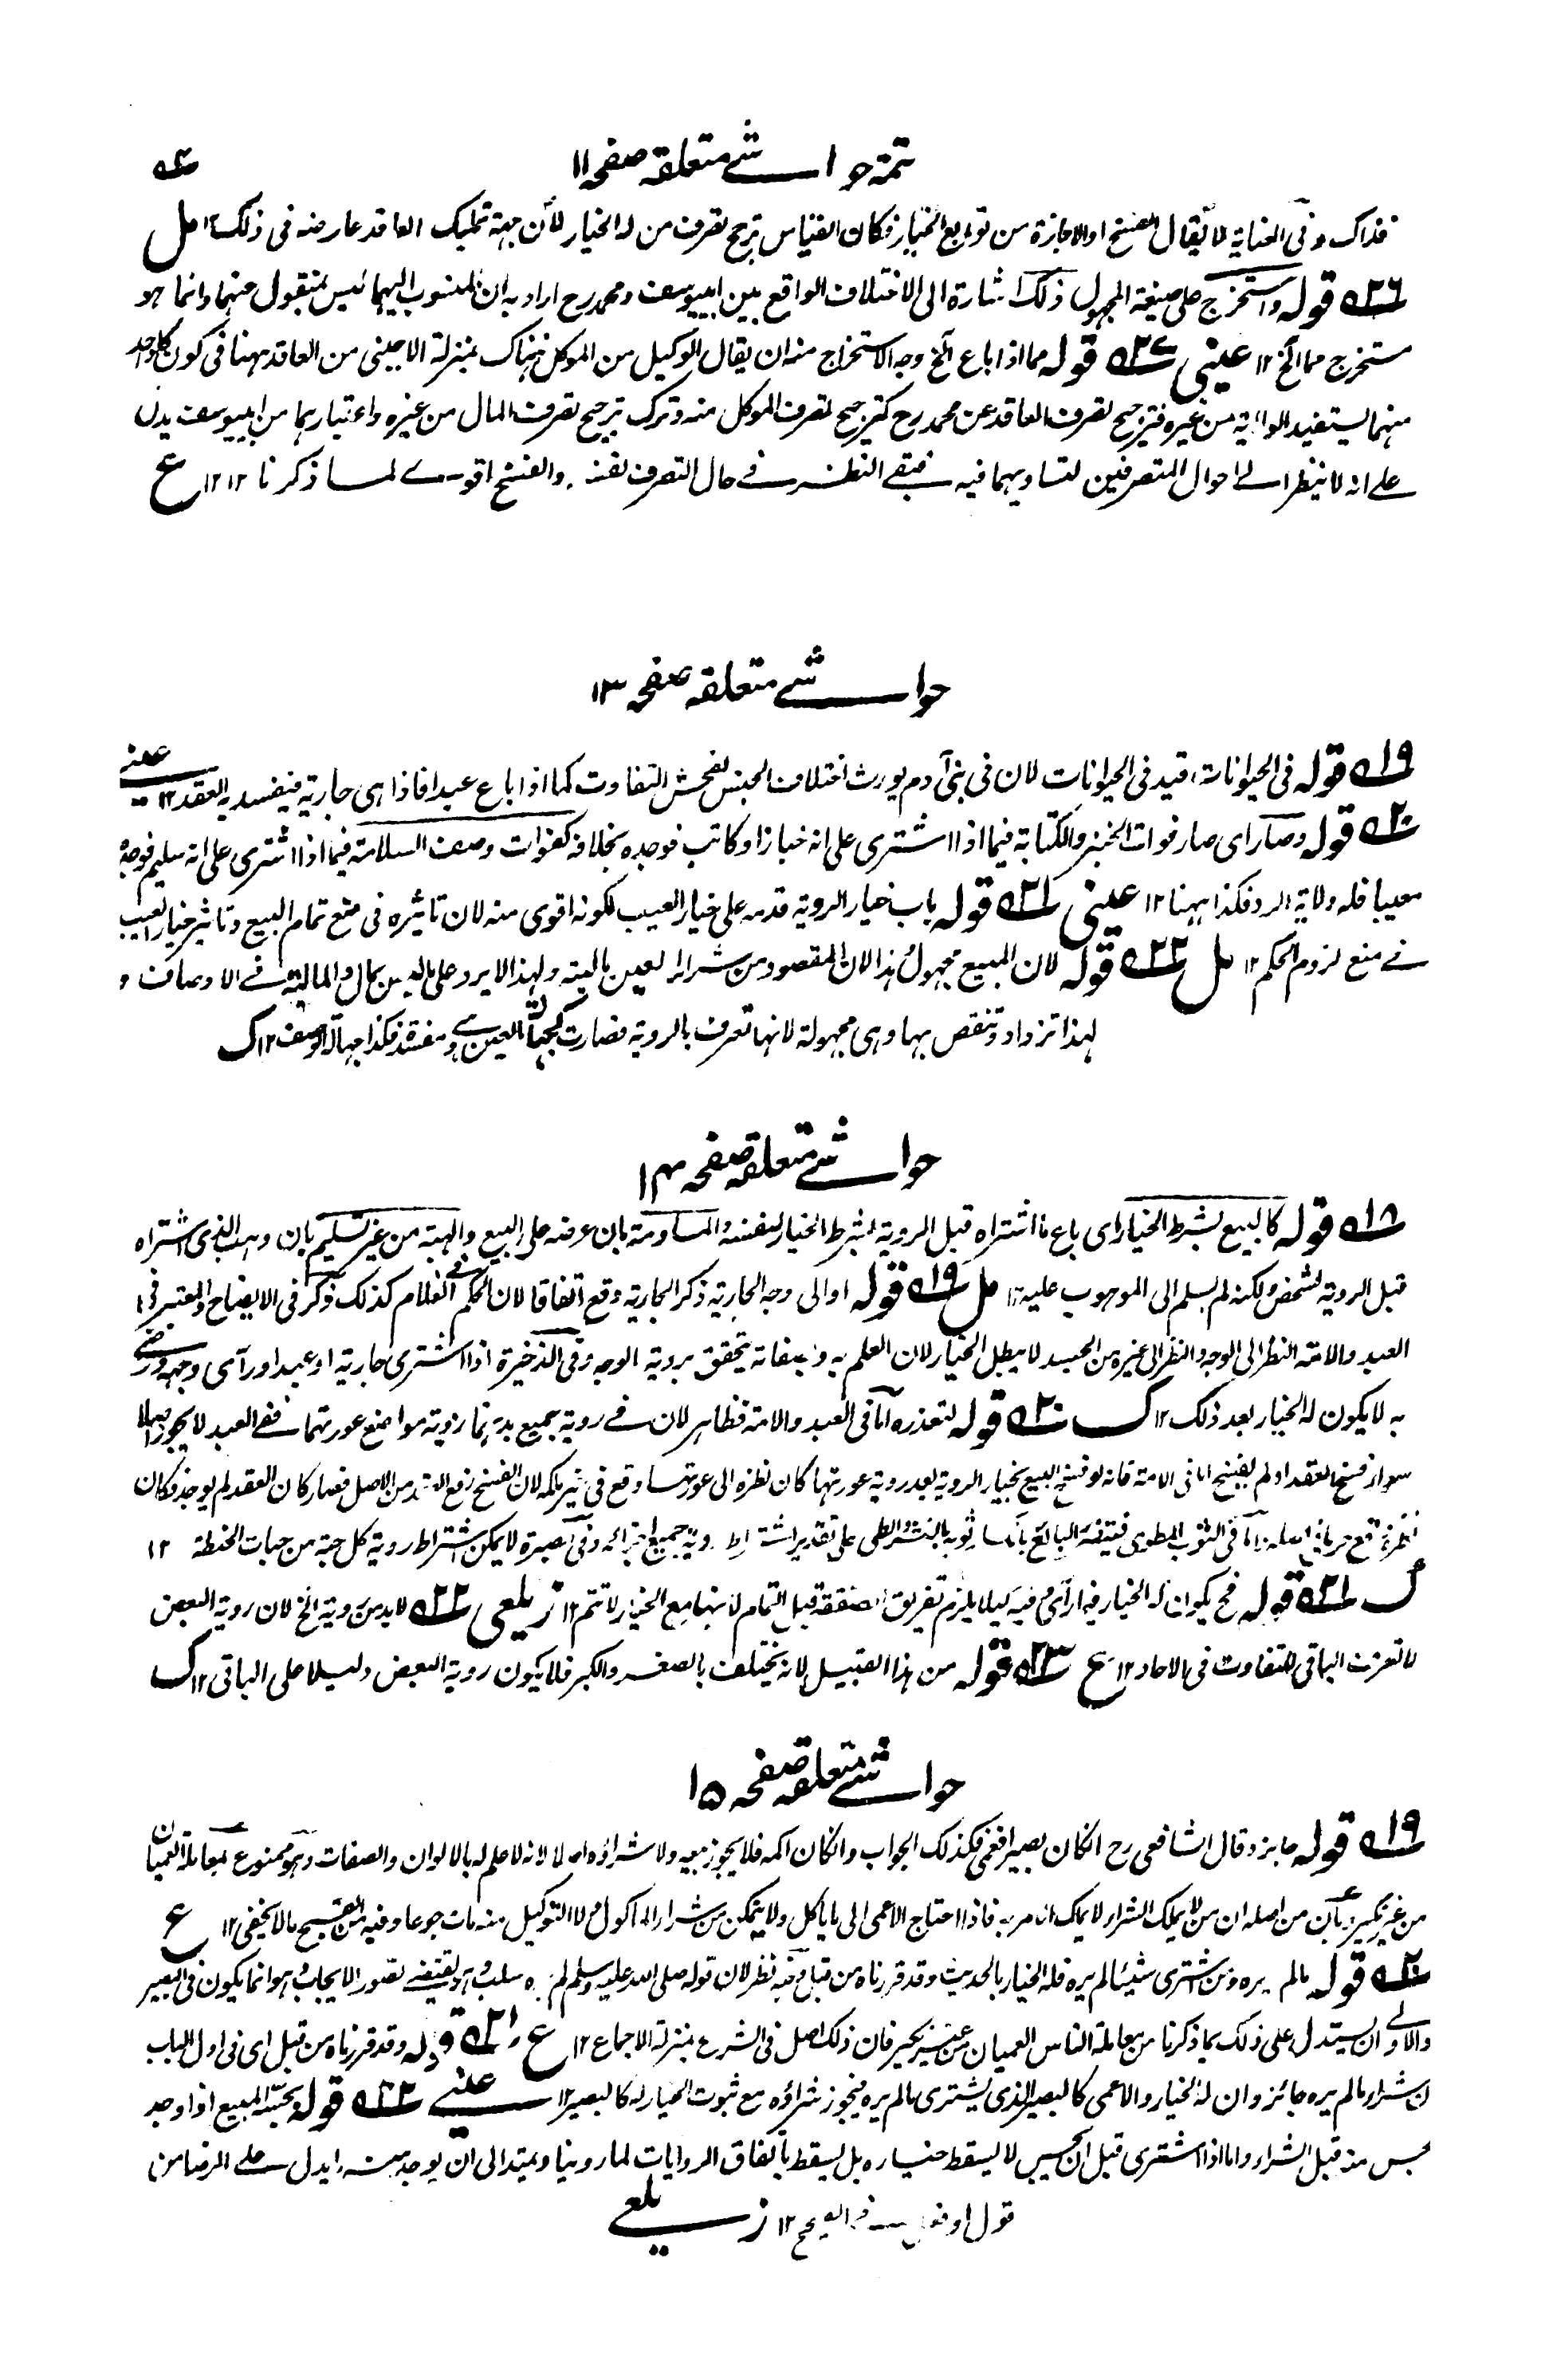 تتمة حواشے متعلقہ صفحہ ۱۱
فذاک وفی العنایة لا یقال الفسخ او الاجازة من توابع الخیار فکان القیاس ترجیح تصرف من له الخیار لأن جهة تملیک العاقد عارضه فی ذلک ۱۲ مل
۳۶ قوله واستخرج علی صیغة المجهول ذلک اشارة الی الاختلاف الواقع بین ابیوسف ومحمد رح اراد به ان المنسوب الیهما لیس بمنقول عنهما وانما هو
مستخرج مما الخ ۱۲ عینی ۳۷ قوله مما اذا باع الخ وجه الاستخراج منه ان یقال الوکیل من الموکل هناک بمنزلة الاجنبی من العاقد ههنا فی کون کل واحد
منهما یستفید الولایة من غیره فترجیح تصرف العاقد عن محمد رح کترجیح تصرف الموکل منه وترک ترجیح تصرف المال من غیره واعتبارهما من ابیوسف یدل
علے انه لا ینظر الے احوال المتصرفین لتساویهما فیه فبقے النظر فے حال التصرف نفسه والفسخ اقوے لما ذکرنا ۱۲ ۱۲ ع
حواشے متعلقہ صفحہ ۱۳
۱۹ قوله فی الحیوانات قید فی الحیوانات لان فی بنی آدم یورث اختلاف الجنس لفحش التفاوت کما اذا باع عبدا فاذا هی جاریة فیفسد به العقد ۱۲ عینے
۲۰ قوله وصار ای صار فوات الخبز والکتابة فیما اذا اشتری علی انه خباز او کاتب فوجده بخلافه کفوات وصف السلامة فیما اذا اشتری علی انه سلیم فوجده
معیبا فله ولایة الرد فکذا ههنا ۱۲ عینی ۲۱ قوله باب خیار الرویة قدمه علی خیار العیب لکونه اقوی منه لان تاثیره فی منع تمام البیع وتاثیر خیار العیب
فے منع لزوم الحکم ۱۲ مل ۲۲ قوله لان المبیع مجهول هذا لان المقصود من شراء العین مالیته ولهذا لا یرد علی مالیس بمال والمالیة فے الاوصاف و
لهذا تزداد وتنقص بها وهی مجهولة لانها تعرف بالرویة فصارت کجهالة العین وهے مفسدة فکذا جهالة الوصف ۱۲ ک
حواشے متعلقہ صفحہ ۱۴
۱۸ قوله کالبیع بشرط الخیار ای باع ما اشتراه قبل الرویة بشرط الخیار لنفسه والمساومة بان عرضه علی البیع والهبة من غیر تسلیم بان وهب الذی اشتراه
قبل الرویة لشخص ولکنه لم یسلم الی الموهوب علیه ۱۲ مل ۱۹ قوله او الی وجه الجاریة ذکر الجاریة وقع اتفاقا لان الحکم فی الغلام کذلک ذکر فی الایضاح والمعتبر فی
العبد والامة النظر الی الوجه والنظر الی غیره من الجسد لا یبطل الخیار لان العلم به وبصفاته یتحقق برویة الوجه وفی الذخیرة اذا اشتری جاریة او عبدا ورآی وجهه ورضی
به لا یکون له الخیار بعد ذلک ۱۲ ک ۲۰ قوله لتعذره اما فی العبد والامة فظاهر لان فے رویة جمیع بدنهما رویة مواضع عورتهما ففے العبد لا یجوز اصلا
سواء فسخ العقد او لم یفسخ اما فی الامة فانه لو فسخ البیع بخیار الرویة بعد رویة عورتها کان نظره الی عورتها وقع فی غیر ملکه لان الفسخ رفع العقد من الاصل فصار کان العقد لم یوجد فکان
نظره وقع حراما فی اصله واما فی الثوب المطوی فیتضرر البائع بانکسار ثوبه بالنشر والطی علی تقدیر اشتراط رویة جمیع اجزائه وفی الصبرة لا یمکن اشتراط رویة کل حبة من حبات الحنطة ۱۲
ک ۲۱ قوله فح یکون له الخیار فیما رآی وفیه لئلا یلزم تفریق الصفقة قبل التمام لانها مع الخیار لا تتم ۱۲ زیلعی ۲۲ لابد من رویة الخ لان رویة البعض
لا تعرف الباقی للتفاوت فی الاحاد ۱۲ ع ۲۳ قوله من هذا القبیل لانه یختلف بالصغر والکبر فلا یکون رویة البعض دلیلا علی الباقی ۱۲ ک
حواشے متعلقہ صفحہ ۱۵
۱۹ قوله جایز وقال الشافعی رح ان کان بصیرا فعمی فکذلک الجواب وان کان اکمه فلا یجوز بیعه ولا شراؤه اصلا لانه لا علم له بالالوان والصفات وهو ممنوع بمعاملة العمیان
من غیر نکیر وبأن من اصله ان من لا یملک الشراء لا یملک الامر به فاذا احتاج الاعمی الی ما یاکل ولا یتمکن من شراء المأکول ولا التوکیل منه مات جوعا وفیه من القبح ما لا یخفی ۱۲ ع
۲۰ قوله مالم یره ومن اشتری شیئا لم یره فله الخیار بالحدیث وقد قررناه من قبل وفیه نظر لان قوله صلی الله علیه وسلم لم یره سلب وهو یقتضے تصور الایجاب وهو انما یکون فی البصیر
والاولے ان یستدل علی ذلک بما ذکرنا من معاملة الناس العمیان من غیر نکیر فان ذلک اصل فی الشرع بمنزلة الاجماع ۱۲ ع ۲۱ قوله وقد قررناه من قبل ای فی اول الباب
ان شراء مالم یره جائز وان له الخیار والاعمی کالبصیر الذی یشتری مالم یره فیجوز شراؤه مع ثبوت الخیار له کالبصیر ۱۲ عینے ۲۲ قوله بجسه المبیع اذا وجد
بجس منه قبل الشراء واما اذا اشتری قبل ان یجس لا یسقط خیاره بل یسقط باتفاق الروایات لما روینا ویمتد الی ان یوجد منه ما یدل علے الرضا من
قول او فعل فے الصحیح ۱۲ زیلعے